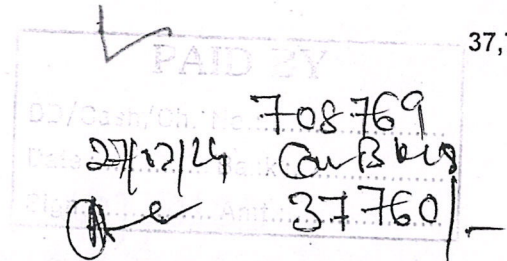 37,
PAID BY
DD/Cash/Ch. No. 708769
Date 27/02/24 Bank
Sign Amt. 37760/-